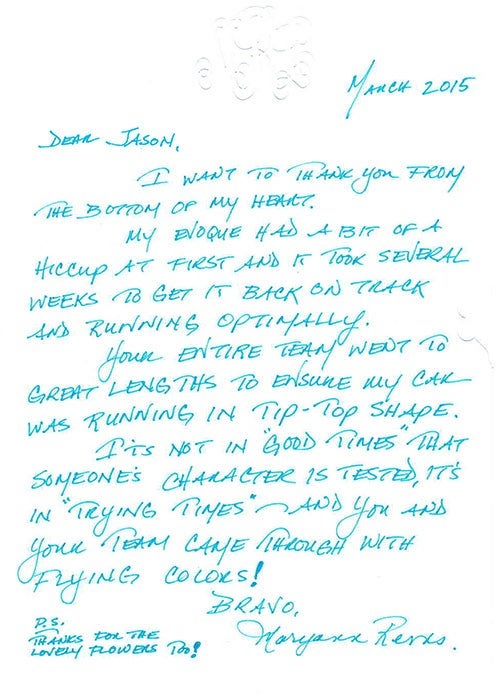 MARCH 2015
DEAR JASON,
I WANT TO THANK YOU FROM
THE BOTTOM OF MY HEART.
MY EVOQUE HAD A BIT OF A
HICCUP AT FIRST AND IT TOOK SEVERAL
WEEKS TO GET IT BACK ON TRACK
AND RUNNING OPTIMALLY.
YOUR ENTIRE TEAM WENT TO
GREAT LENGTHS TO ENSURE MY CAR
WAS RUNNING IN TIP-TOP SHAPE.
IT'S NOT IN "GOOD TIMES" THAT
SOMEONE'S CHARACTER IS TESTED, IT'S
IN "TRYING TIMES" ~ AND YOU AND
YOUR TEAM CAME THROUGH WITH
FLYING COLORS!
BRAVO,
Maryann
P.S.
THANKS FOR THE
LOVELY FLOWERS TOO!